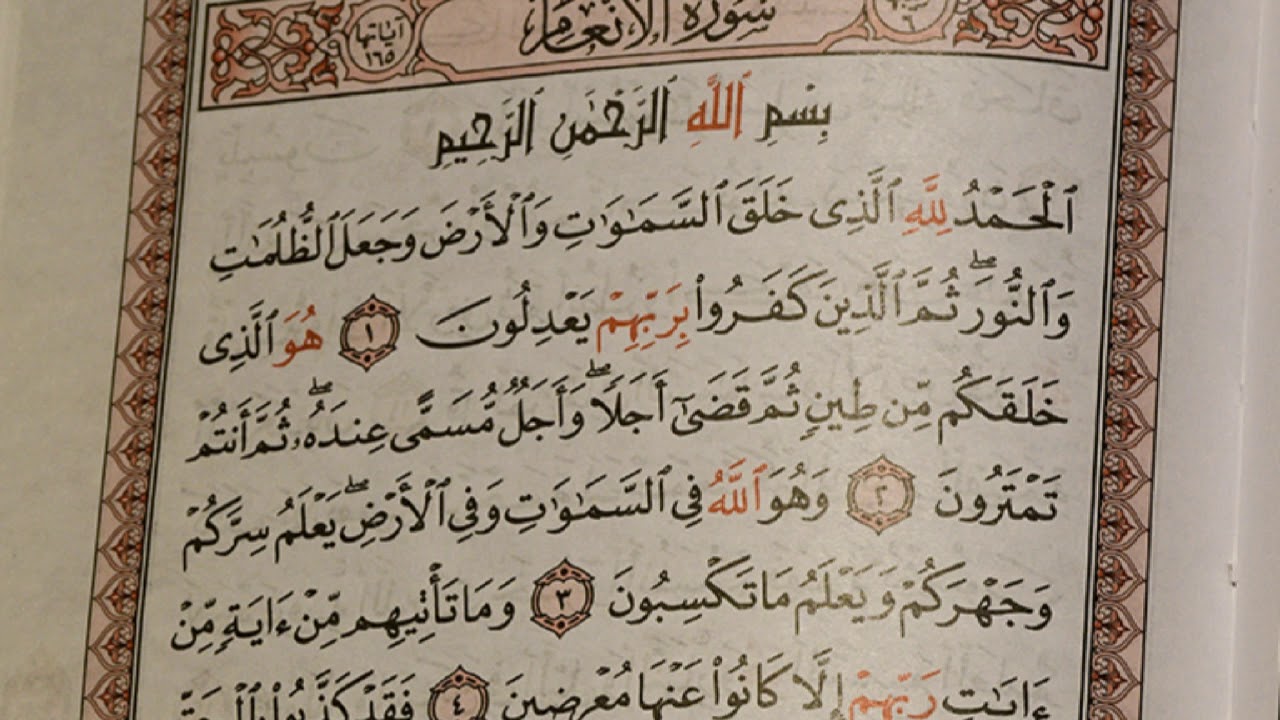 سُورَةُ الْأَنْعَامِ
آيَاتُهَا ١٦٥
٦
بِسْمِ ٱللَّهِ ٱلرَّحْمَٰنِ ٱلرَّحِيمِ
ٱلْحَمْدُ لِلَّهِ ٱلَّذِى خَلَقَ ٱلسَّمَٰوَٰتِ وَٱلْأَرْضَ وَجَعَلَ ٱلظُّلُمَٰتِ
وَٱلنُّورَ ۖ ثُمَّ ٱلَّذِينَ كَفَرُوا۟ بِرَبِّهِمْ يَعْدِلُونَ ١ هُوَ ٱلَّذِى
خَلَقَكُم مِّن طِينٍ ثُمَّ قَضَىٰٓ أَجَلًا ۖ وَأَجَلٌ مُّسَمًّى عِندَهُۥ ۖ ثُمَّ أَنتُمْ
تَمْتَرُونَ ٢ وَهُوَ ٱللَّهُ فِى ٱلسَّمَٰوَٰتِ وَفِى ٱلْأَرْضِ ۖ يَعْلَمُ سِرَّكُمْ
وَجَهْرَكُمْ وَيَعْلَمُ مَا تَكْسِبُونَ ٣ وَمَا تَأْتِيهِم مِّنْ ءَايَةٍ مِّنْ
ءَايَٰتِ رَبِّهِمْ إِلَّا كَانُوا۟ عَنْهَا مُعْرِضِينَ ٤ فَقَدْ كَذَّبُوا۟ بِٱلْحَقِّ